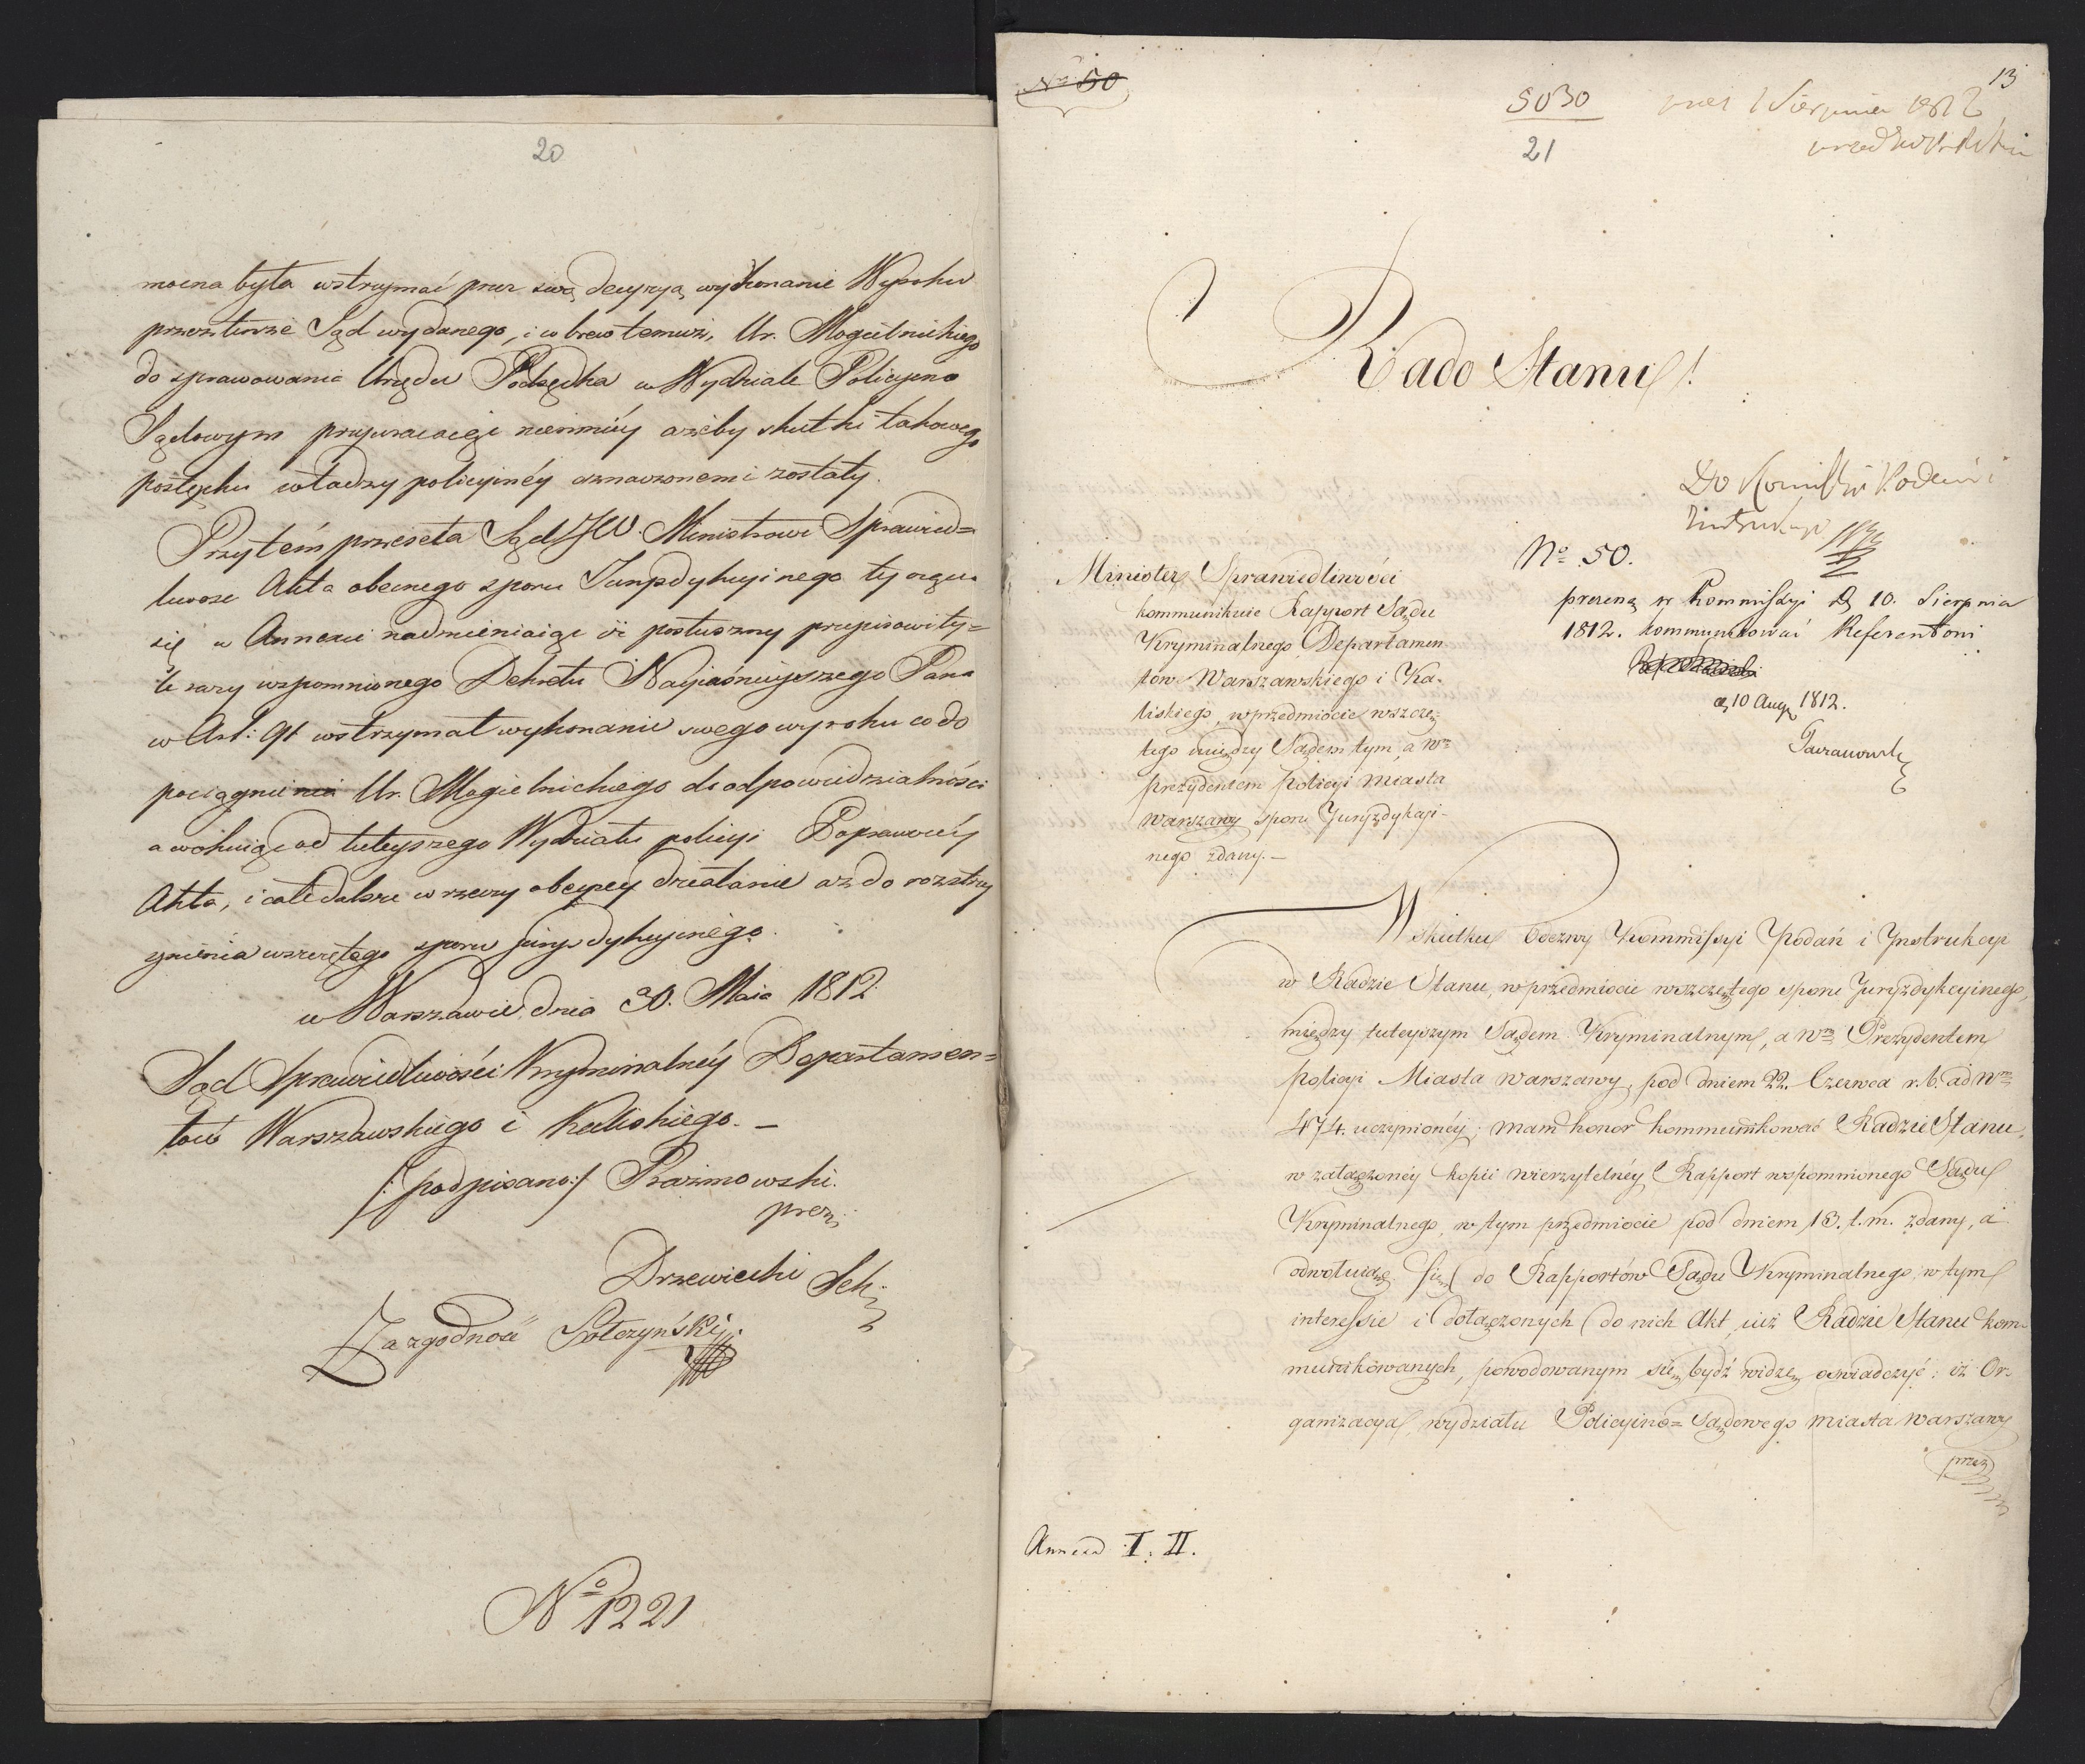 20
mocna była wstrzymać przez swą decyzyą wykonanie Wyroku
przez tenże Sąd wydanego, i w brew temuż, Ur. Mogielnickiego
do sprawowania Urzędu Podsędka w Wydziale Policyjno
Sądowym przywracaiąc niemniéy ażeby skutki takowego
postępku władzy policyinéy oznaczonemi zostały.
Przytém przeseła Sąd JW. Ministrowi Sprawied=
liwości Akta obecnego sporu Juryzdykcyinego tyczące
się w Annexie nadmieniaiąc iż posłuszny przepisowi ty=
le razy wspomnionego Dekretu Nayiaśnieyszego Pana
w Art: 91 wstrzymał wykonanie swego wyroku co do
pociągnienia Ur. Mogielnickiego do odpowiedzialności
a wołuiąc od tuteyszego Wydziału policyi Poprawczéy
Akta, i całe dalsze w rzeczy obecney działanie aż do rozstrzy
gnienia wszczętego sporu jurysdykcyinego.
w Warszawie dnia 30. Maia 1812
Sąd Sprawiedliwości Kryminalnéy Departamen=
tów Warszawskiego i Kaliskiego. —
/: podpisano :/ Prażmowski.
prez.
Drzewiecki Sek.
Za zgodność Sołczyński
No 1221
No 50
5030
21
13
prez 1 Sierpnia 1812
Rado Stanu!
Do Kommissyi Podań i
Instrukcyi
No 50.
prezen. w Kommissyi D. 10. Sierpnia
1812. kommunikować Referentowi
d. 10 Aug. 1812.
Minister Sprawiedliwości
kommunikuie Rapport Sądu
Kryminalnego Departamen
tów Warszawskiego i Ka-
liskiego, w przedmiocie wszczę-
tego między Sądem tym, a Wm
prezydentem policyi miasta
Warszawy sporu Juryzdykcyi-
nego zdany. —
W skutku Odezwy Kommissyi Podań i Instrukcyi
w Radzie Stanu, w przedmiocie wszczętego sporu Juryzdykcyinego,
między tuteyszym Sądem Kryminalnym, a Wm Prezydentem
policyi Miasta Warszawy, pod dniem 22. Czerwca r. b. ad Nm
474. uczynionéy; mam honor kommunikować Radzie Stanu,
w załączonéy kopii wierzytelnéy Rapport wspomnionego Sądu
Kryminalnego, w tym przedmiocie pod dniem 13. t. m. zdany, a
odwołuiąc się do Rapportów Sądu Kryminalnego, w tym
interessie i dołączonych do nich Akt, iuż Radzie Stanu kom-
munikowanych, powodowanym się bydź widzę oświadczyć: iż Or-
ganizacya wydziału Policyino=Sądowego miasta Warszawy
przez
Annexa I. II.